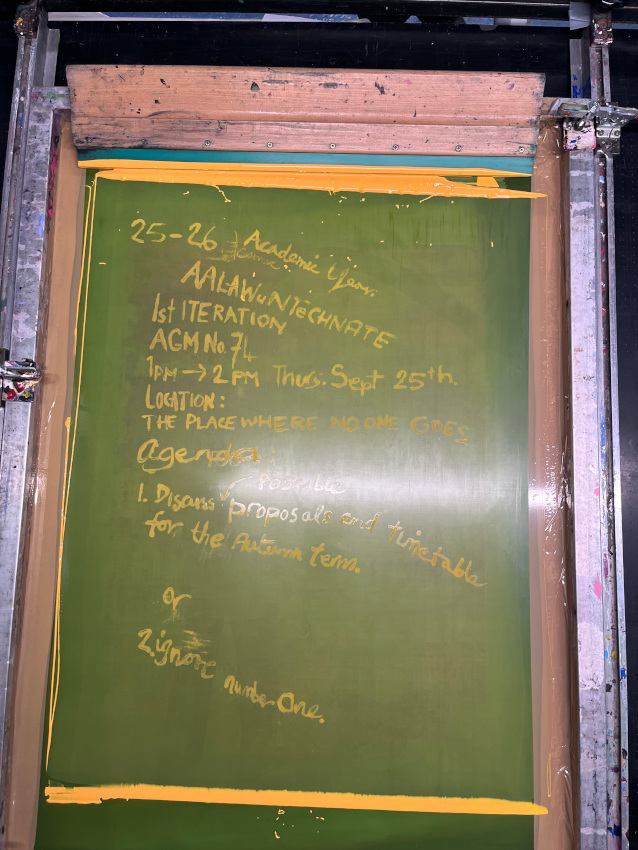 25-26 Academic Year.
AALAWUNTECHNATE
1st ITERATION
AGM No. 74
1PM → 2PM Thurs. Sept 25th.
LOCATION:
THE PLACE WHERE NO ONE GOES
agenda:
possible
1. Discuss proposals and timetable
for the Autumn term.
or
2. ignore number One.